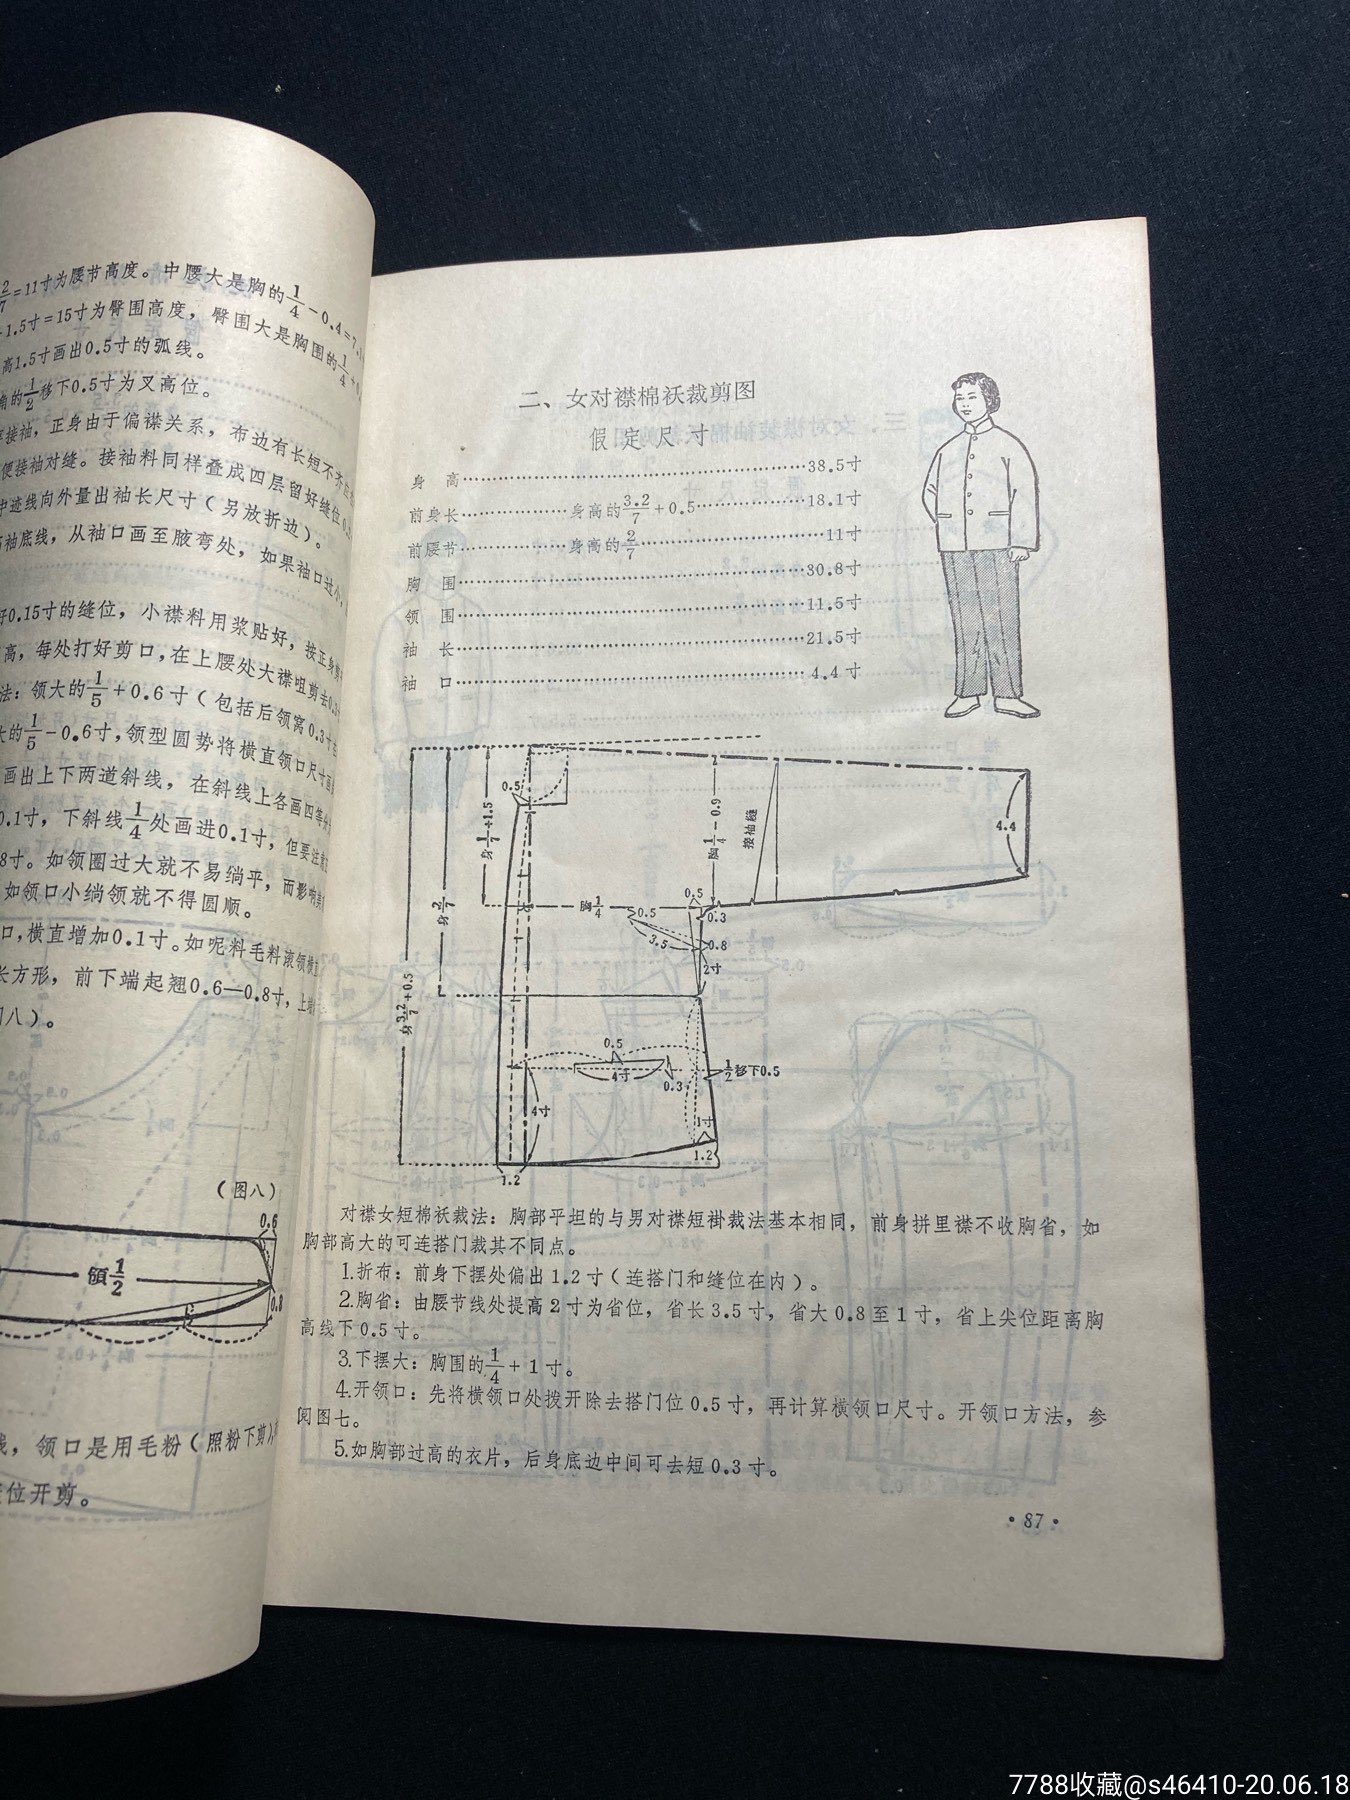 2/7=11寸为腰节高度。中腰大是胸的1/4-0.4=7.
1.5寸=15寸为臀围高度，臀围大是胸围的1/4
高1.5寸画出0.5寸的弧线。
角的1/2移下0.5寸为叉高位。
接袖，正身由于偏襟关系，布边有长短不齐
便接袖对缝。接袖料同样叠成四层留好缝位
中迹线向外量出袖长尺寸（另放折边）。
袖底线，从袖口画至腋弯处，如果袖口过小，
好0.15寸的缝位，小襟料用浆贴好，按正身
高，每处打好剪口，在上腰处大襟咀剪去0.3
法：领大的1/5+0.6寸（包括后领窝0.3寸
大的1/5-0.6寸，领型圆势将横直领口尺寸画
画出上下两道斜线，在斜线上各画四等分
0.1寸，下斜线1/4处画进0.1寸，但要注意
8寸。如领圈过大就不易绱平，而影响美
如领口小绱领就不得圆顺。
口，横直增加0.1寸。如呢料毛料滚领横直
长方形，前下端起翘0.6—0.8寸，上端
图八）。
（图八）
0.6
領1/2
0.8
线，领口是用毛粉（照粉下剪）
位开剪。
二、女对襟棉袄裁剪图
假定尺寸
身 高……38.5寸
前身长……身高的3.2/7+0.5……18.1寸
前腰节……身高的2/7……11寸
胸 围……30.8寸
领 围……11.5寸
袖 长……21.5寸
袖 口……4.4寸
0.5
身1/7+1.5
胸1/4-0.9
接袖縫
4.4
身2/7
胸1/4
0.5
0.3
0.5
3.5
0.8
2寸
身3.2/7+0.5
0.5
4寸
0.3
1/2移下0.5
4寸
1寸
1.2
1.2
对襟女短棉袄裁法：胸部平坦的与男对襟短褂裁法基本相同，前身拼里襟不收胸省，如
胸部高大的可连搭门裁其不同点。
1.折布：前身下摆处偏出1.2寸（连搭门和缝位在内）。
2.胸省：由腰节线处提高2寸为省位，省长3.5寸，省大0.8至1寸，省上尖位距离胸
高线下0.5寸。
3.下摆大：胸围的1/4+1寸。
4.开领口：先将横领口处拨开除去搭门位0.5寸，再计算横领口尺寸。开领口方法，参
阅图七。
5.如胸部过高的衣片，后身底边中间可去短0.3寸。
·87·
7788收藏@s46410-20.06.18